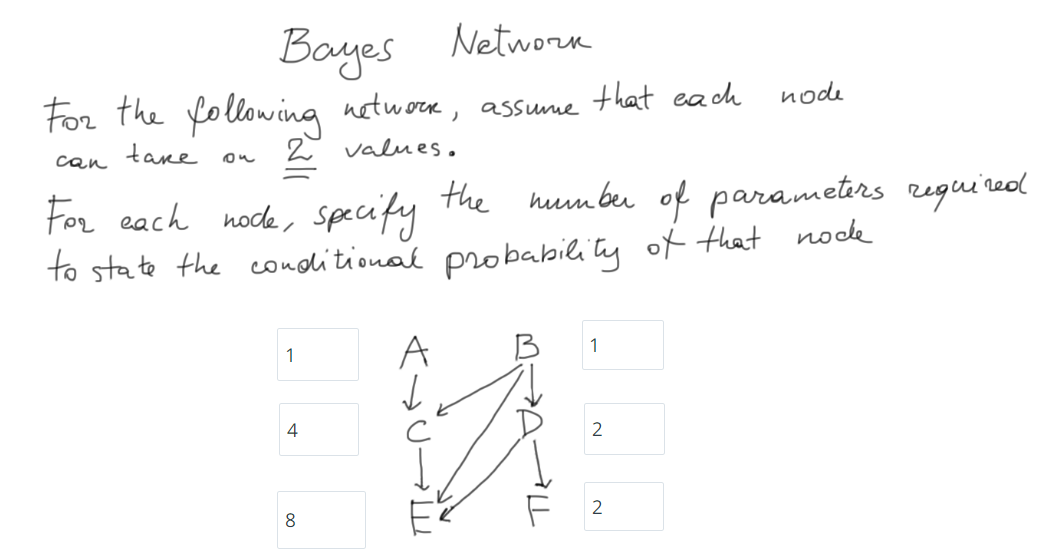 Bayes Network
For the following network, assume that each node
can take on 2 values.
For each node, specify the number of parameters required
to state the conditional probability of that node
1 A B 1
4 C D 2
8 E F 2